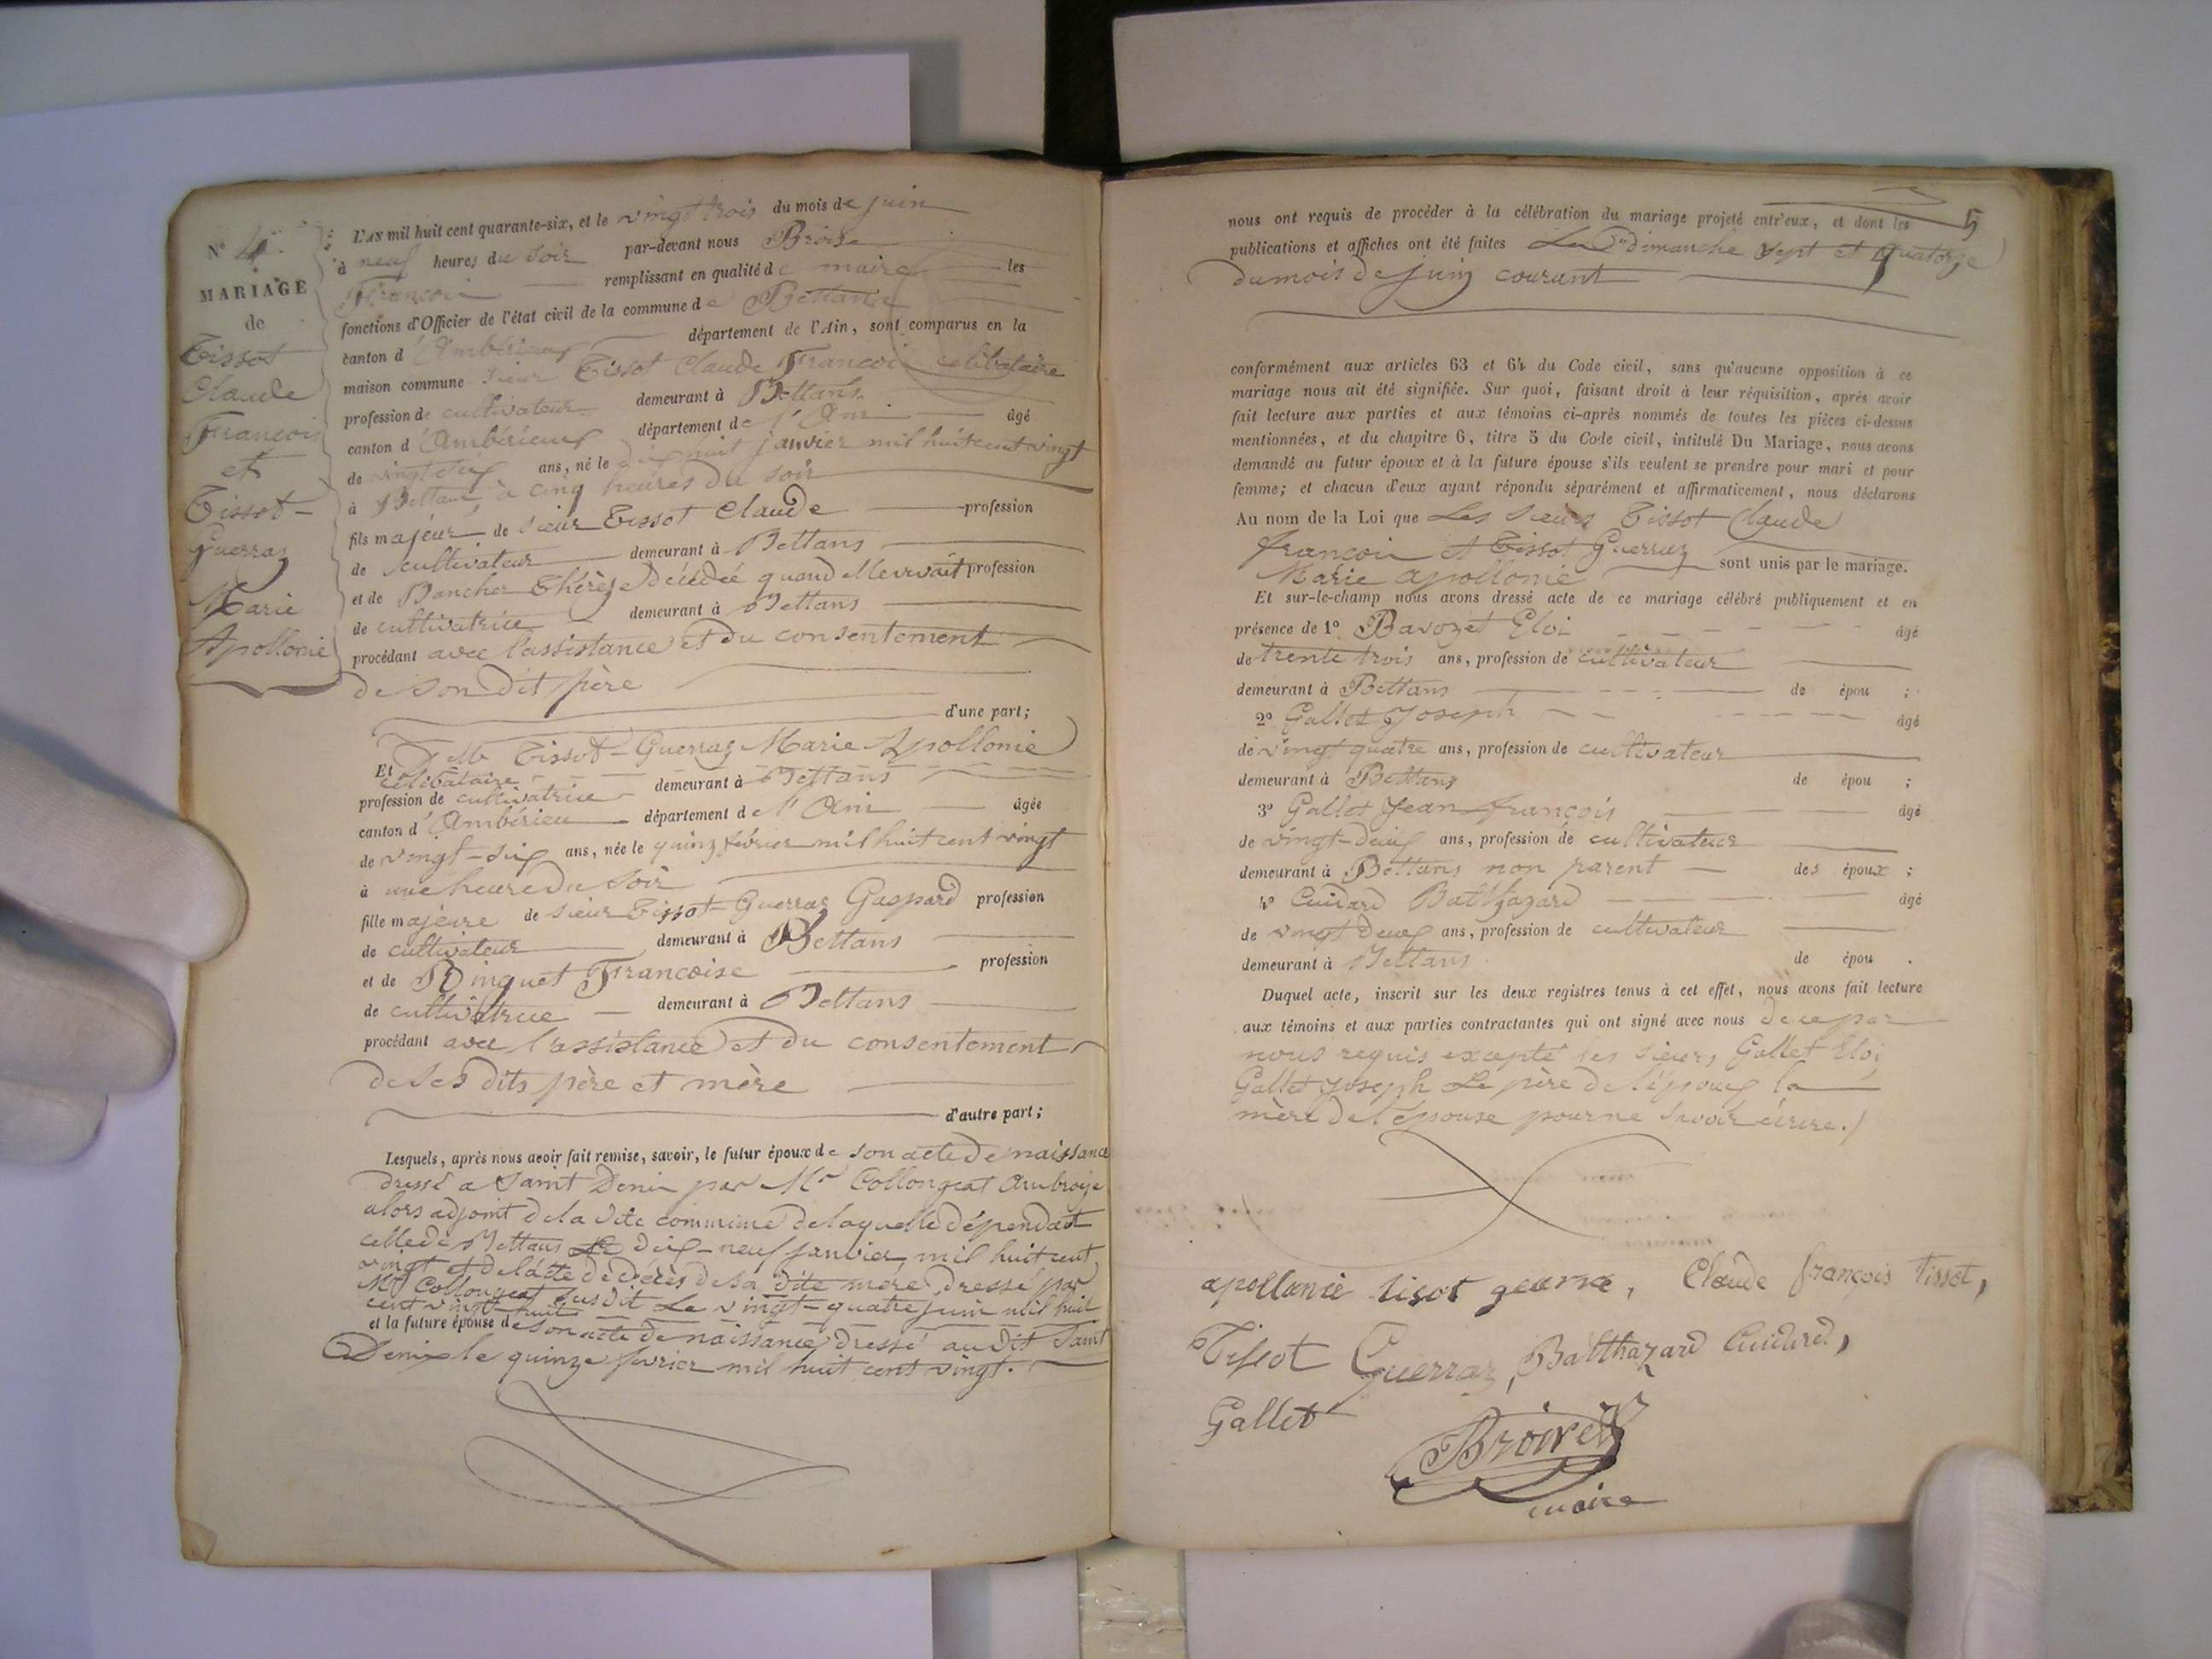 N° 4.
MARIAGE
de
Tissot
Claude
François
et
Tissot-
Guerraz
Marie
Apollonie
L'AN mil huit cent quarante-six, et le vingt trois du mois de juin
à neuf heures du soir par-devant nous
François remplissant en qualité de maire les
fonctions d'Officier de l'état civil de la commune de Bettans
canton d'Ambérieux département de l'Ain, sont comparus en la
maison commune sieur Tissot Claude François célibataire
profession de cultivateur demeurant à Bettans
canton d'Ambérieux département de l'Ain âgé
de vingt six ans, né le dix huit janvier mil huit cent vingt
à Bettans à cinq heures du soir
fils majeur de sieur Tissot Claude profession
de cultivateur demeurant à Bettans
et de Bancher Thérèze décédée quand elle vivait profession
de cultivatrice demeurant à Bettans
procédant avec l'assistance et du consentement
de son dit père
d'une part;
Et Delle Tissot-Guerraz Marie Apollonie
célibataire
profession de cultivatrice demeurant à Bettans
canton d'Ambérieu département de l'Ain âgée
de vingt-six ans, née le quinz février mil huit cent vingt
à une heure du soir
fille majeure de sieur Tissot-Guerraz Gaspard profession
de cultivateur demeurant à Bettans
et de Ringuet Francoise profession
de cultivatrice demeurant à Bettans
procédant avec l'assistance et du consentement
de ses dits père et mère
d'autre part;
Lesquels, après nous avoir fait remise, savoir, le futur époux de son acte de naissance
dressé a Saint Denis par Mr Collongeat Ambroise
alors adjoint de la dite commune de laquelle dépendait
celle de Bettans le dix-neuf janvier mil huit cent
vingt et de l'acte de décès de sa dite mère dressé par
Mr Collongeat susdit le vingt-quatre juin mil huit
cent vingt-huit
et la future épouse de son acte de naissance dressé au dit Saint
Denis le quinze février mil huit cent vingt.
5
nous ont requis de procéder à la célébration du mariage projeté entr'eux, et dont les
publications et affiches ont été faites Les dimanche sept et quatorze
du mois de juin courant
conformément aux articles 63 et 64 du Code civil, sans qu'aucune opposition à ce
mariage nous ait été signifiée. Sur quoi, faisant droit à leur réquisition, après avoir
fait lecture aux parties et aux témoins ci-après nommés de toutes les pièces ci-dessus
mentionnées, et du chapitre 6, titre 5 du Code civil, intitulé Du Mariage, nous avons
demandé au futur époux et à la future épouse s'ils veulent se prendre pour mari et pour
femme; et chacun d'eux ayant répondu séparément et affirmativement, nous déclarons
Au nom de la Loi que Les sieurs Tissot Claude
françois et Tissot Guerraz
Marie apollonie sont unis par le mariage.
Et sur-le-champ nous avons dressé acte de ce mariage célébré publiquement et en
présence de 1° Bavozet Eloi âgé
de trente trois ans, profession de cultivateur
demeurant à Bettans de épou ;
2° Gallet Joseph âgé
de vingt quatre ans, profession de cultivateur
demeurant à Bettans de épou ;
3° Gallet Jean françois âgé
de vingt-deux ans, profession de cultivateur
demeurant à Bettans non parent des époux ;
4° Cuidard Balthazard âgé
de vingt deux ans, profession de cultivateur
demeurant à Bettans de épou .
Duquel acte, inscrit sur les deux registres tenus à cet effet, nous avons fait lecture
aux témoins et aux parties contractantes qui ont signé avec nous de ce par
nous requis excepté les sieurs Gallet Eloi
Gallet Joseph Le père de l'époux la
mère de l'épouse pour ne savoir écrire.
apollonie tisot , Claude françois Tissot,
Tissot Guerraz, Balthazard Cuidard,
Gallet
maire